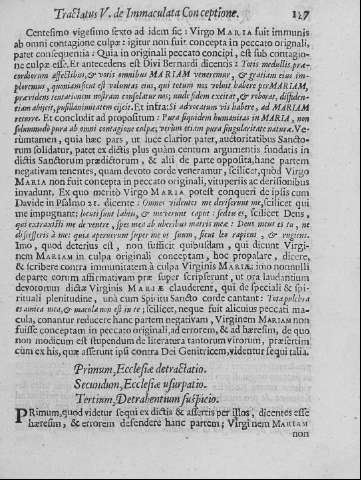 Tractatus V. de Immaculata Conceptione. 127
Centesimo vigesimo sexto ad idem sic: Virgo MARIA fuit immunis
ab omni contagione culpæ: igitur non fuit concepta in peccato orignali,
patet consequentia: Quia in originali peccato concipi, est sub contagio-
ne culpæ esse. Et antecedens est Divi Bernardi dicentis: Totis medullis præ-
cordiorum affectibus, & votis omnibus MARIAM veneremur, & gratiam eius im-
ploremus, quoniam sicut est voluntas eius, qui totum nos voluit habere per MARIAM,
trepidationem
recurre. Et concludit ad propositum: Pura siquidem humanitas in MARIA, non
solummodo pura ab omni contagione culpæ, verùm etiam pura singularitate naturæ. Ve-
rùmtamen, quia hæc pars, ut luce clarior patet, auctoritatibus Sancto-
rum solidatur, patet ex dictis plus quàm centum argumentis fundatis in
dictis Sanctorum prædictorum, & alii de parte opposita, hanc partem
negativam tenentes, quam devoto corde veneramur, scilicet, quòd Virgo
MARIA non fuit concepta in peccato originali, vituperiis ac derisionibus
invadunt. Ex quo meritò Virgo MARIA potest conqueri de ipsis cum
Davide in Psalmo 21. dicente: Omnes videntes me deriserunt me, scilicet qui
me impugnant: locuti sunt labiis, & moverunt caput: sed tu es, scilicet Deus,
qui extraxisti me de ventre, spes mea ab uberibus matris meæ: Deus meus es tu, ne
discesseris à me: quia aperuerunt super me os suum, sicut leo rapiens, & rugiens.
Imo, quod deterius est, non sufficit quibusdam, qui dicunt Virgi-
nem MARIAM in culpa originali conceptam, hoc propalare, dicere,
& scribere contra immunitatem à culpa Virginis MARIÆ: imo nonnulli
de parte eorum affirmativam præ super scripserunt, ut ora laudantium
devotorum dictæ Virginis MARIÆ clauderent, qui de speciali & spi-
rituali plenitudine, unà cum Spiritu Sancto corde cantant: Tota pulchra
es amica mea, & macula non est in te; scilicet, neque fuit alicuius peccati ma-
cula, conantur reducere hanc partem negativam, Virginem MARIAM non
fuisse conceptam in peccato originali, ad errorem, & ad hæresim, de quo
non modicum est stupendum de literatura tantorum virorum, præsertim
cum ex his, quæ asserunt ipsi contra Dei Genitricem, videntur sequi talia.
Primum, Ecclesiæ detractatio.
Secundum, Ecclesiæ usurpatio.
Tertium, Detrahentium suspicio.
PRimum, quod videtur sequi ex dictis & assertis per illos, dicentes esse
hæresim, & errorem defendere hanc partem; Virginem MARIAM
non